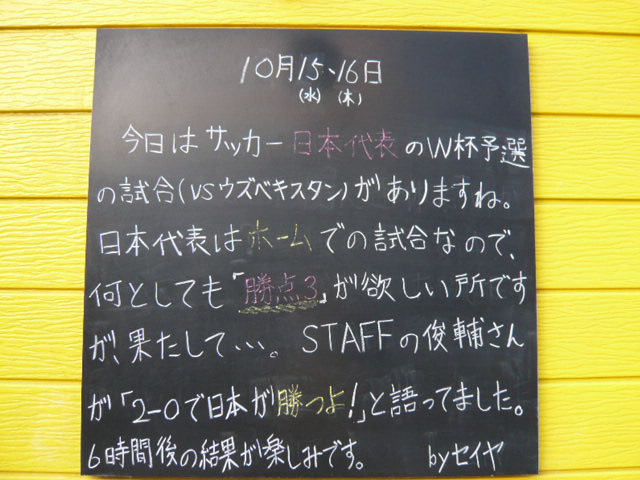 10月15、16日
(水) (木)
今日はサッカー日本代表のW杯予選
の試合(VSウズベキスタン)がありますね。
日本代表はホームでの試合なので、
何としても「勝点3」が欲しい所です
が、果たして…。STAFFの俊輔さん
が「2-0で日本が勝つよ!」と語ってました。
6時間後の結果が楽しみです。 byセイヤ